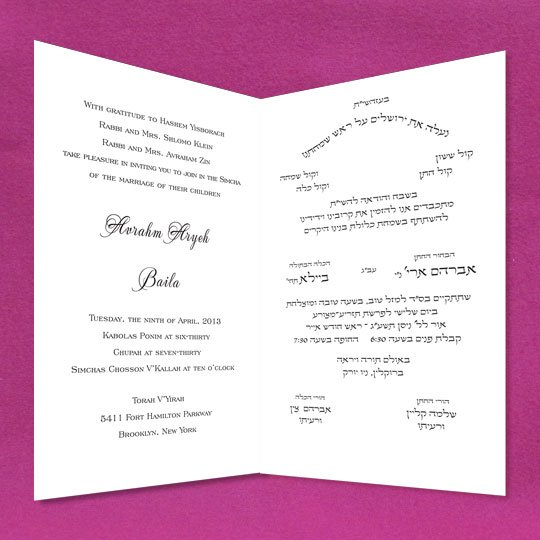 With gratitude to Hashem Yisborach
Rabbi and Mrs. Shlomo Klein
Rabbi and Mrs. Avraham Zin
take pleasure in inviting you to join in the Simcha
of the marriage of their children
Avrahm Aryeh
Baila
Tuesday, the ninth of April, 2013
Kabolas Ponim at six-thirty
Chupah at seven-thirty
Simchas Chosson V'Kallah at ten o'clock
Torah V'Yirah
5411 Fort Hamilton Parkway
Brooklyn, New York
בעזהשי"ת
נעלה את ירושלים על ראש שמחתנו
קול ששון וקול שמחה
קול חתן וקול כלה
בשבח והודאה להשי"ת
מתכבדים אנו להזמין את קרובינו וידידינו
להשתתף בשמחת כלולת בנינו היקרים
הבחור החתן הכלה הבתולה
אברהם ארי' ני' עב"ג ביילא תחי'
שתתקיים בס"ד למזל טוב, בשעה טובה ומוצלחת
ביום שלישי לפרשת תזריע-מצורע
אור לל' ניסן תשע"ג - ראש חודש אייר
קבלת פנים בשעה 6:30 החופה בשעה 7:30
באולם תורה ויראה
ברוקלין, ניו יורק
הורי החתן הורי הכלה
שלמה קליין אברהם צין
ורעיתו ורעיתו